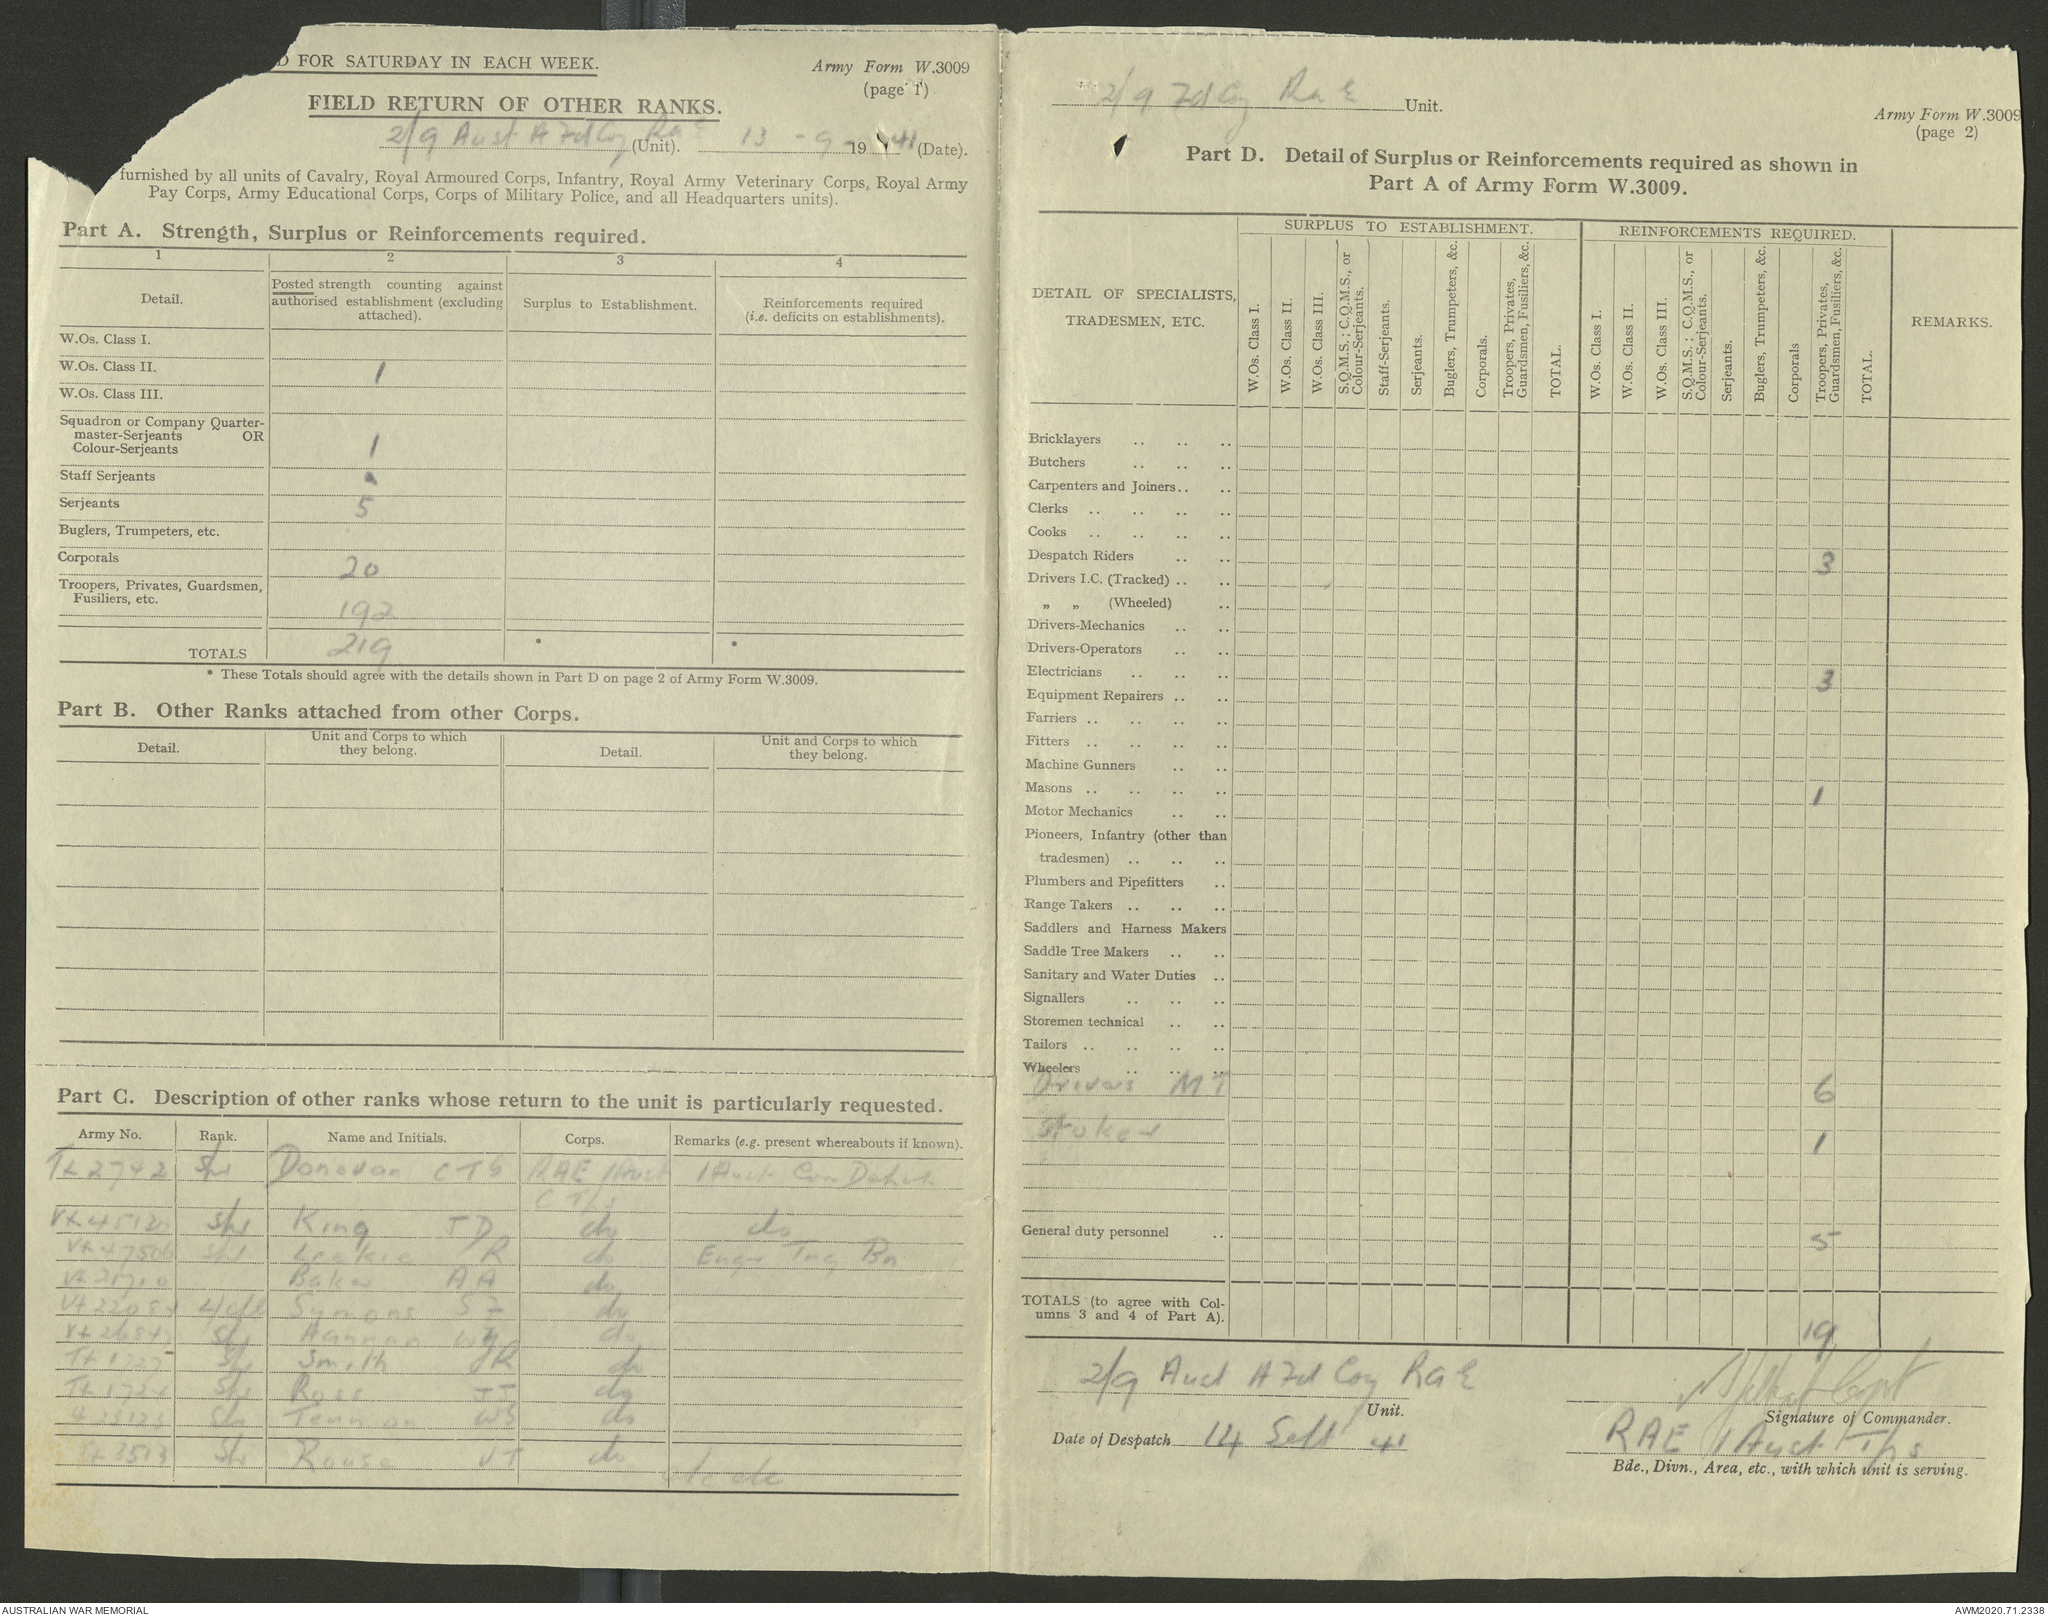 D FOR SATURDAY IN EACH WEEK.
Army Form W.3009
(page 1)
FIELD RETURN OF OTHER RANKS.
2/9 Aust A Fd Coy RAE (Unit). 13 - 9 - 1941 (Date).
furnished by all units of Cavalry, Royal Armoured Corps, Infantry, Royal Army Veterinary Corps, Royal Army
Pay Corps, Army Educational Corps, Corps of Military Police, and all Headquarters units).
Part A. Strength, Surplus or Reinforcements required.
1 2 3 4
Detail.
Posted strength counting against
authorised establishment (excluding
attached).
Surplus to Establishment.
Reinforcements required
(i.e. deficits on establishments).
W.Os. Class I.
W.Os. Class II. 1
W.Os. Class III.
Squadron or Company Quarter-
master-Serjeants OR
Colour-Serjeants 1
Staff Serjeants
Serjeants 5
Buglers, Trumpeters, etc.
Corporals 20
Troopers, Privates, Guardsmen,
Fusiliers, etc. 192
TOTALS 219 * *
* These Totals should agree with the details shown in Part D on page 2 of Army Form W.3009.
Part B. Other Ranks attached from other Corps.
Detail.
Unit and Corps to which
they belong.
Detail.
Unit and Corps to which
they belong.
Part C. Description of other ranks whose return to the unit is particularly requested.
Army No. Rank. Name and Initials. Corps. Remarks (e.g. present whereabouts if known).
Tx 2792 Spr Donovan C T G RAE 1 Aust 1 Aust Con Depot
C Tps
Vx 45120 Spr King J D do do
Vx 47506 Spr R do Engr Tng Bn
Baker A A do
Symons S I do
Spr Hannan do
Spr Smith J R do
Tx 1724 Spr Ross J J do
W S do
Tx 3513 Spr Rouse V T do
2/9 Fd Coy RAE Unit.
Army Form W.3009
(page 2)
Part D. Detail of Surplus or Reinforcements required as shown in
Part A of Army Form W.3009.
DETAIL OF SPECIALISTS,
TRADESMEN, ETC.
SURPLUS TO ESTABLISHMENT.
W.Os. Class I.
W.Os. Class II.
W.Os. Class III.
S.Q.M.S.; C.Q.M.S., or
Colour-Serjeants.
Staff-Serjeants.
Serjeants.
Buglers, Trumpeters, &c.
Corporals.
Troopers, Privates,
Guardsmen, Fusiliers, &c.
TOTAL.
REINFORCEMENTS REQUIRED.
W.Os. Class I.
W.Os. Class II.
W.Os. Class III.
S.Q.M.S.; C.Q.M.S., or
Colour-Serjeants.
Serjeants.
Buglers, Trumpeters, &c.
Corporals
Troopers, Privates,
Guardsmen, Fusiliers, &c.
TOTAL.
REMARKS.
Bricklayers .. .. ..
Butchers .. .. ..
Carpenters and Joiners .. ..
Clerks .. .. .. ..
Cooks .. .. .. ..
Despatch Riders .. .. 3
Drivers I.C. (Tracked) .. ..
„ „ (Wheeled) ..
Drivers-Mechanics .. ..
Drivers-Operators .. ..
Electricians .. .. .. 3
Equipment Repairers .. ..
Farriers .. .. .. ..
Fitters .. .. .. ..
Machine Gunners .. ..
Masons .. .. .. .. 1
Motor Mechanics .. ..
Pioneers, Infantry (other than
tradesmen) .. .. ..
Plumbers and Pipefitters ..
Range Takers .. .. ..
Saddlers and Harness Makers
Saddle Tree Makers .. ..
Sanitary and Water Duties ..
Signallers .. .. ..
Storemen technical .. ..
Tailors .. .. .. ..
Wheelers .. .. ..
Drivers MT 6
Stoker 1
General duty personnel .. 5
TOTALS (to agree with Col-
umns 3 and 4 of Part A). 19
2/9 Aust A Fd Coy RAE
Unit.
Capt
Signature of Commander.
Date of Despatch 14 Sept 41
RAE 1 Aust Tps
Bde., Divn., Area, etc., with which unit is serving.
AUSTRALIAN WAR MEMORIAL
AWM2020.71.2338